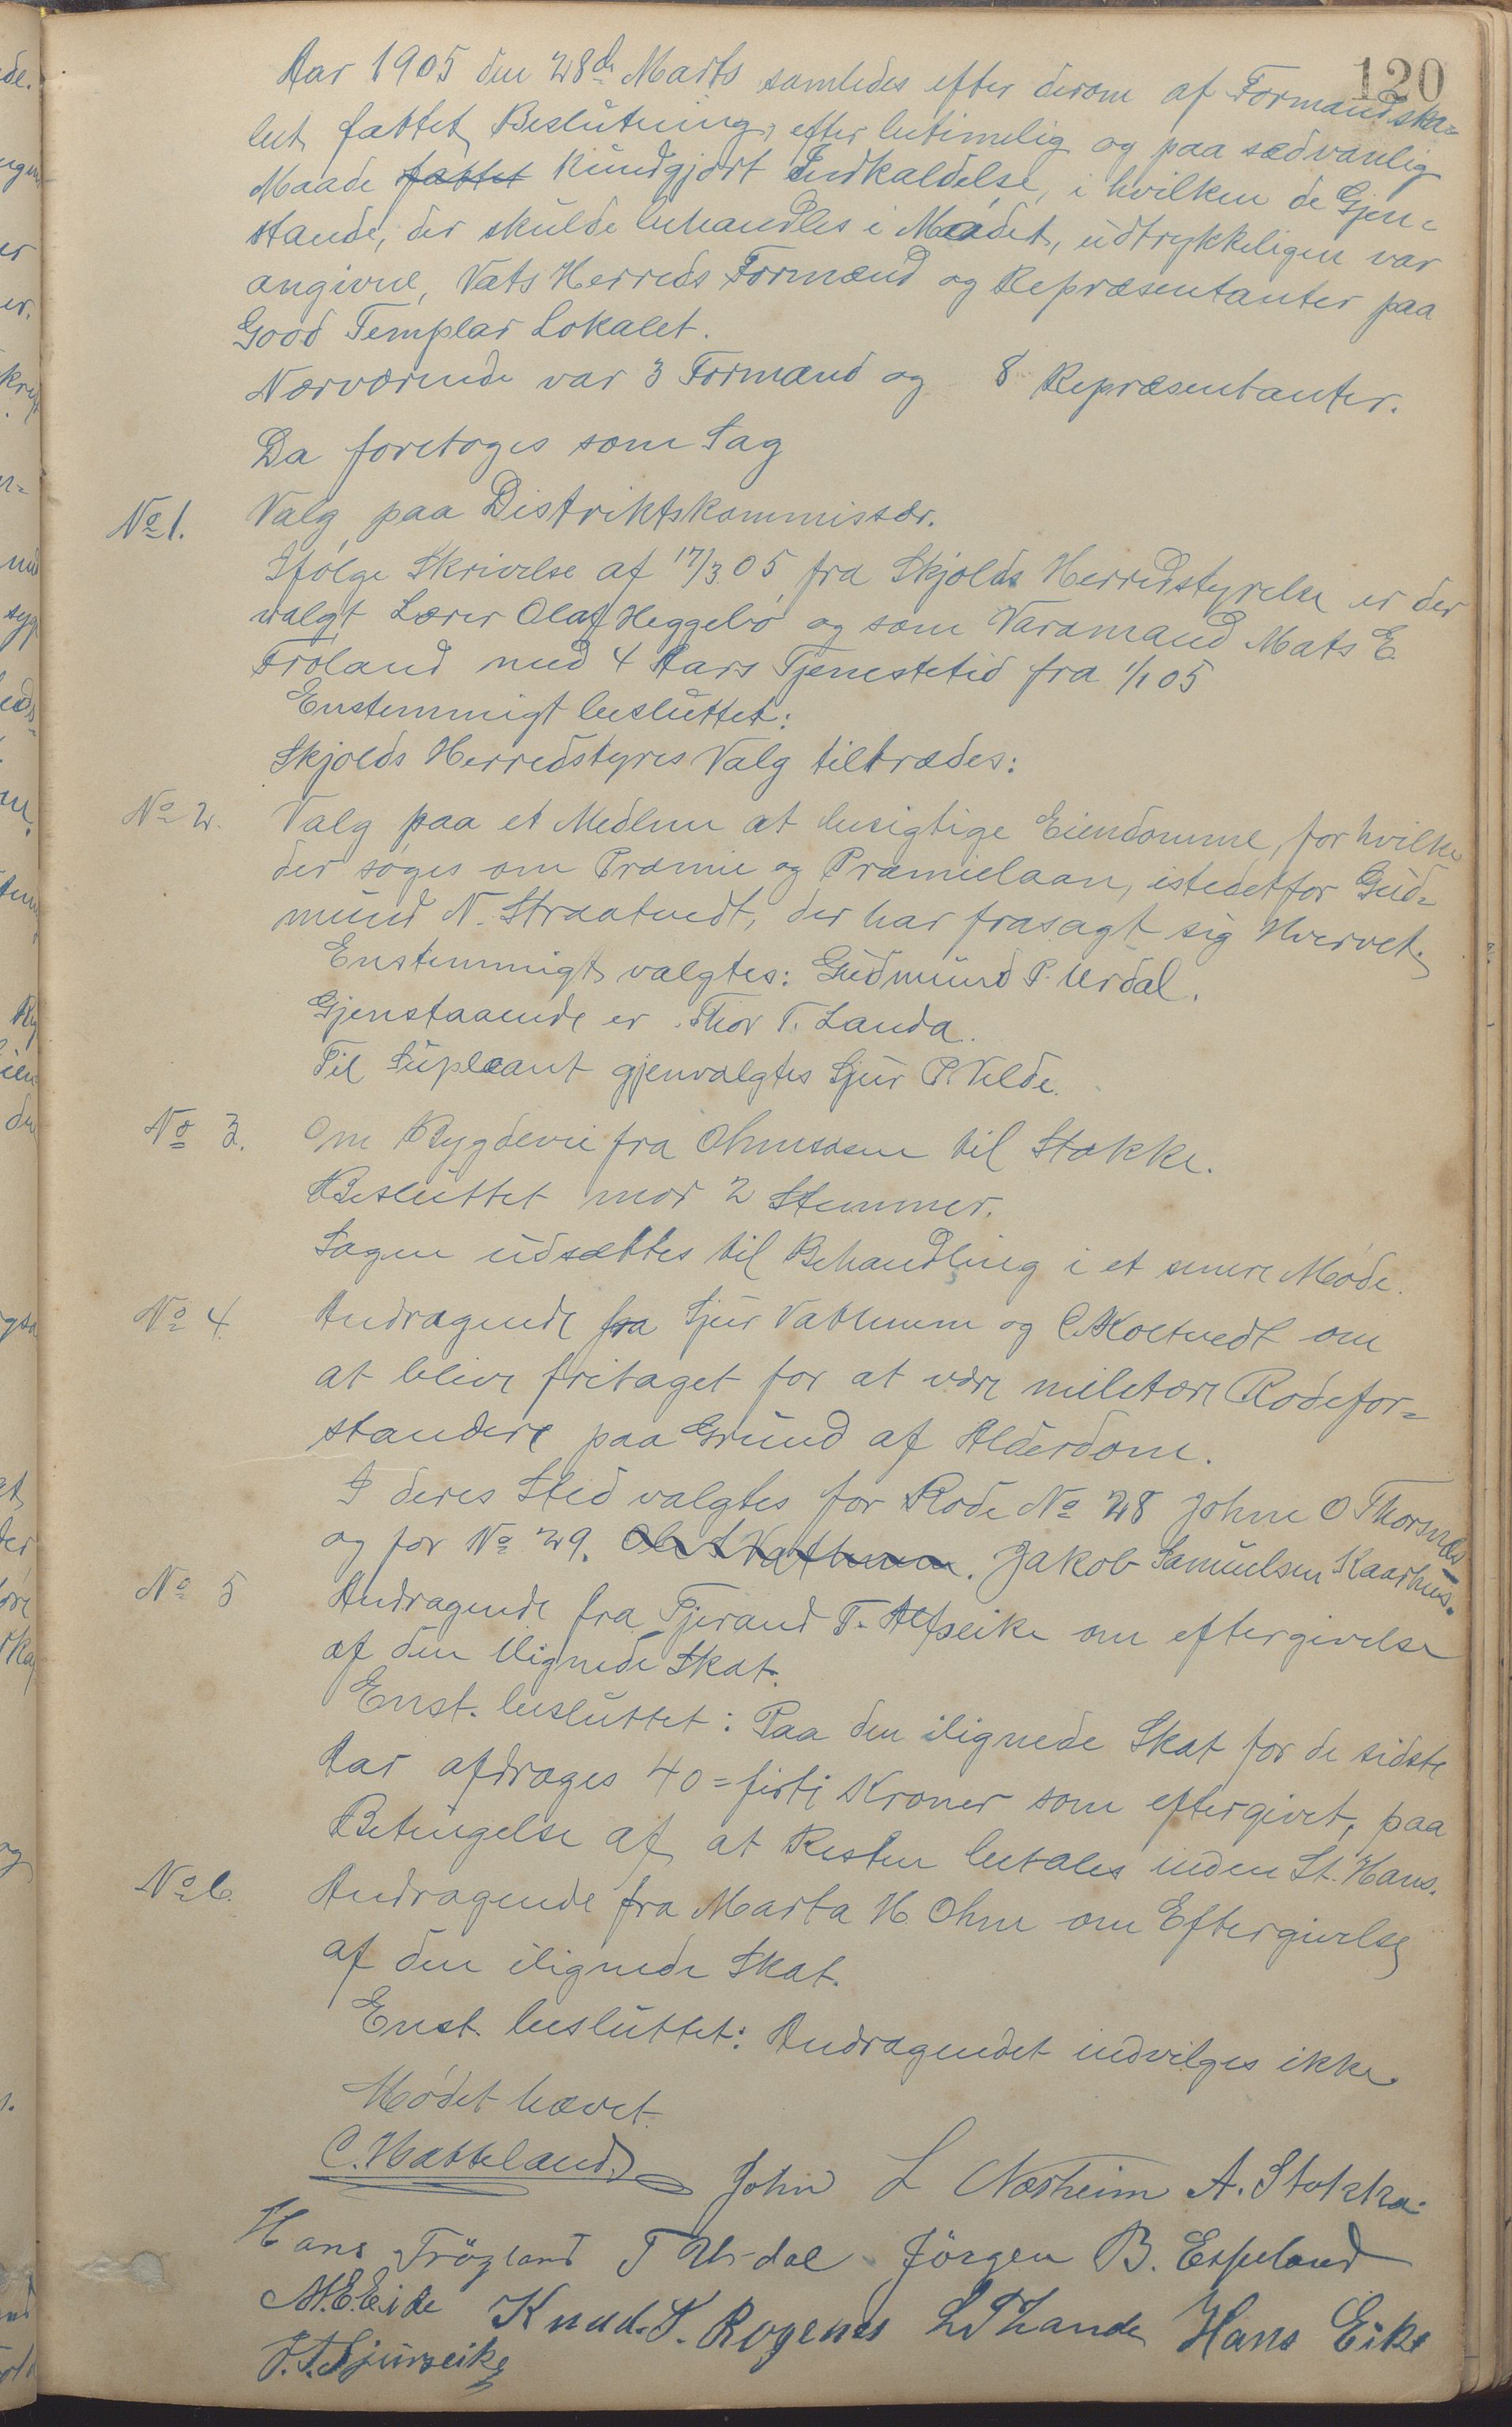 120
Aar 1905 den 28de Marts samledes efter derom af Formandska-
bet fattet Beslutning, efter betimelig og paa sædvanlig
Maade fattet kundgjort Indkaldelse, i hvilken de Gjen-
stande, der skulde behandles i Mødet, udtrykkeligen var
angivne, Vats Herreds Formænd og Repræsentanter paa
Good Templar Lokalet.
Nærværende var 3 Formænd og 8 Repræsentanter.
Da foretoges som Sag
No 1. Valg paa Distriktskommissær.
Ifølge Skrivelse af 17/3 05 fra Skjolds Herredstyrelse er der
valgt Lærer Olaf Heggebø og som Varamand Mats E.
Frøland med 4 Aars Tjenestetid fra 1/1 05
Enstemmigt besluttet:
Skjolds Herredstyres Valg tiltrædes:
No 2. Valg paa et Medlem at besigtige Eiendomme, for hvilke
der søges om Præmie og Præmielaan, istedetfor Gud-
mund N. Straatvedt, der har frasagt sig Hvervet.
Enstemmigt valgtes: Gudmund P. Urdal.
Gjenstaaende er Thor T. Landa.
Til Supleant gjenvalgtes Sjur P. Velde.
No 3. Om Bygdevei fra Ohmsosen til Stokke.
Besluttet mod 2 Stemmer.
Sagen udsættes til Behandling i et senere Møde.
No 4. Andragende fra Sjur Vathnem og C. Koltvedt om
at blive fritaget for at være miletære Rodefor-
standere paa Grund af Alderdom.
I deres Sted valgtes for Rode No 28 Johne O Thorsnes
og for No 29. Ole S Vathnem. Jakob Samuelsen Kaarhus.
No 5 Andragende fra Tjerand T. Alfseike om eftergivelse
af den ilignede Skat.
Enst. besluttet: Paa den ilignede Skat for de sidste
Aar afdrages 40 = firti Kroner som eftergivet, paa
Betingelse af at Resten betales inden St. Hans.
No 6. Andragende fra Marta H. Ohm om Eftergivelse
af den ilignede Skat.
Enst. besluttet: Andragendet indvilges ikke.
Mødet hævet.
C. Hatteland. John L Næsheim A. Stokka.
Hans Frøgland T Urdal Jörgen B. Espeland
M. E. Eide Knud. K. Rogenes L T Lande Hans Eike
J. T. Sjurseike